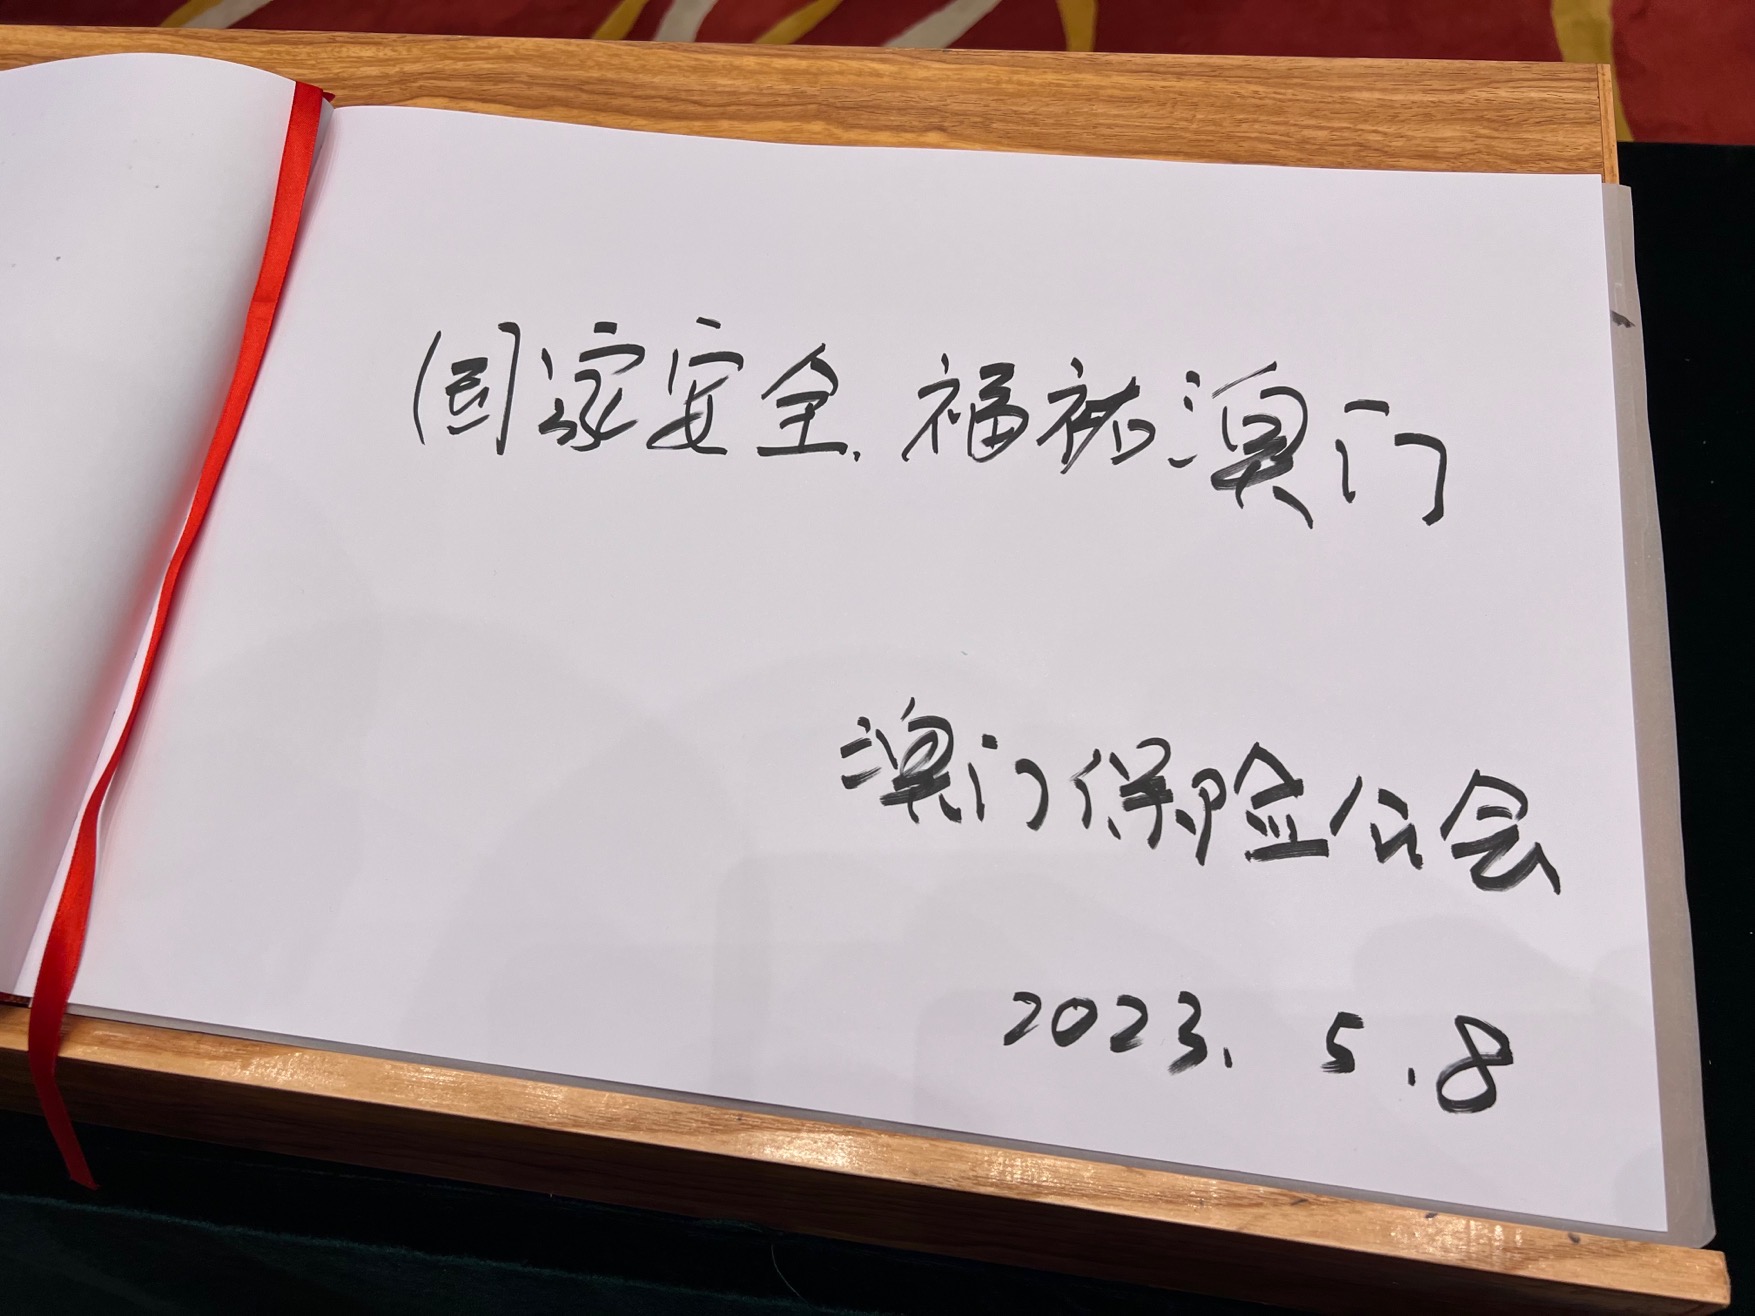 国家安全.福祐澳门
澳门保险公会
2023. 5.8